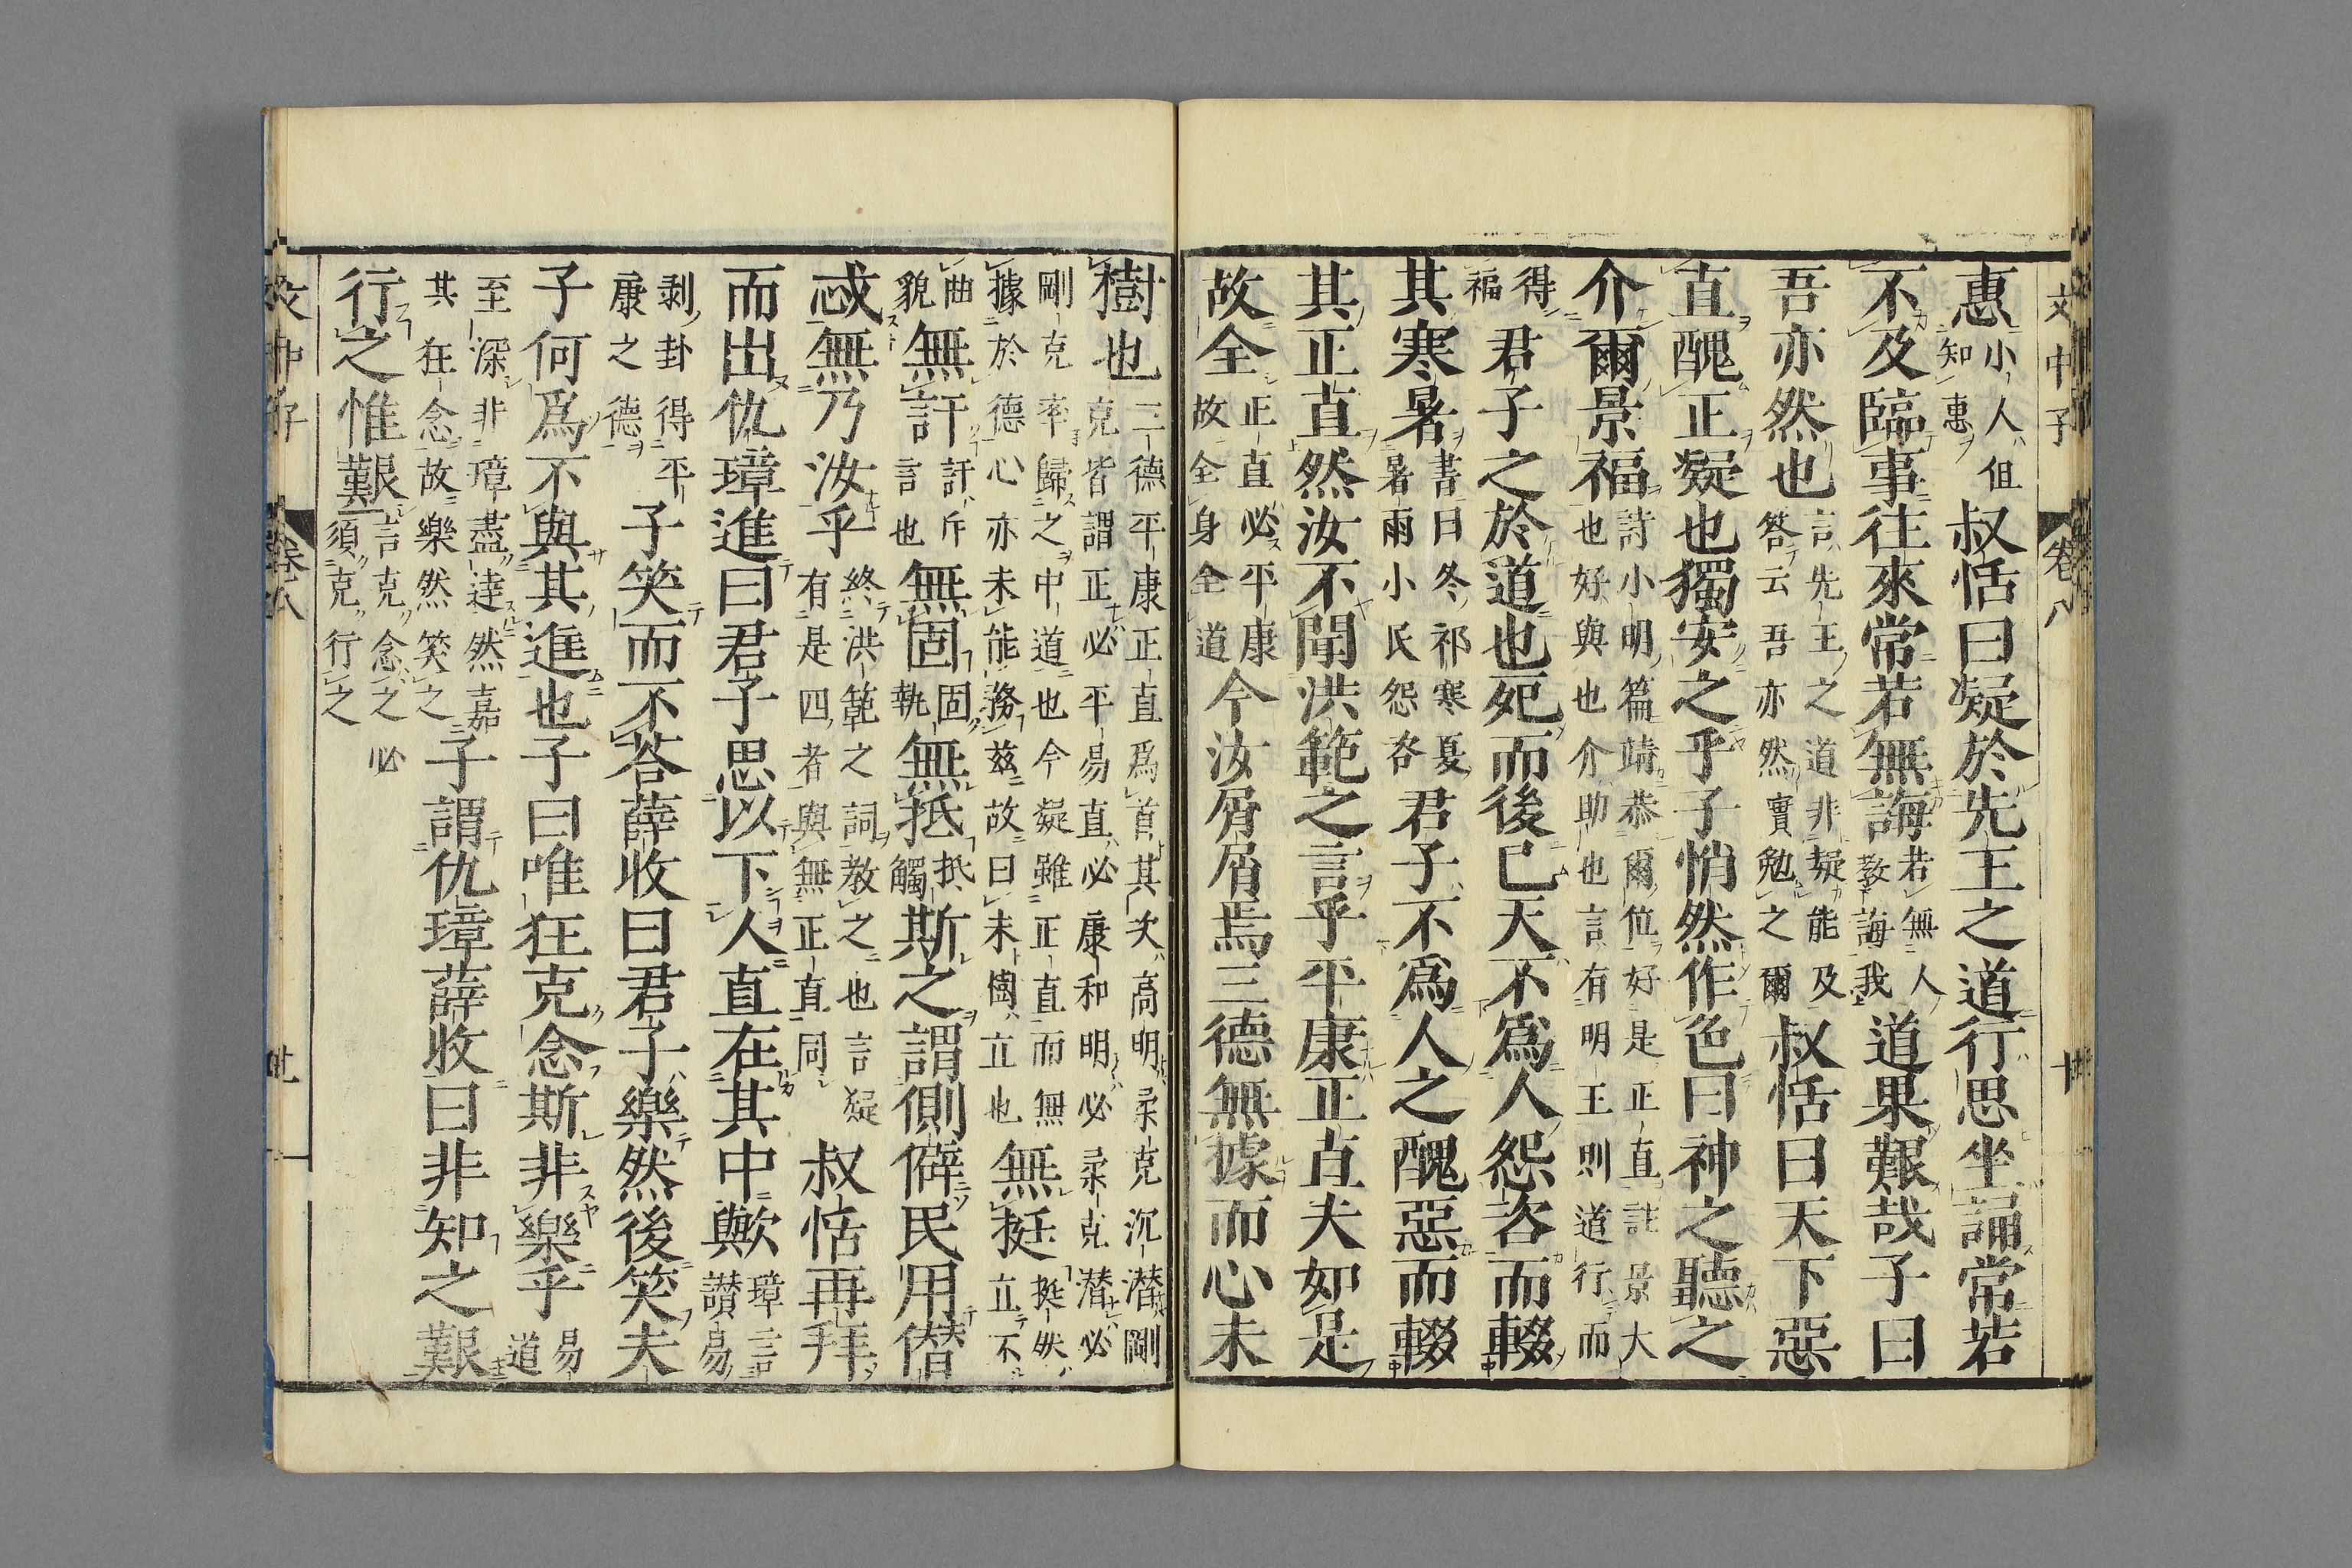 文中子 卷八 十
惠小人但知惠叔恬曰凝於先王之道行思坐誦常若
不及臨事往來常若無誨若無人教誨我道果艱哉子曰
吾亦然也言先王之道非凝能及答云吾亦然實勉之爾叔恬曰天下惡
直醜正凝也獨安之乎子悄然作色曰神之聽之
介爾景福詩小明篇靖恭爾位好是正直註景大也好與也介助也言有明王則道行而
得福君子之於道也死而後已天不爲人怨咨而輟
其寒暑書曰冬祁寒夏暑雨小民怨咨君子不爲人之醜惡而輟
其正直然汝不聞洪範之言乎平康正直夫如是
故全正直必平康故全身全道今汝屑屑焉三德無據而心未
樹也三德平康正直爲首其次高明柔克沉潛剛克皆謂正必平易直必康和明必柔克潛必
剛克率歸之中道也今凝雖正直而無據於德心亦未能務茲故曰未樹立也無挺挺然立不
曲貌無訐訐斥言也無固固執無抵抵觸斯之謂側僻民用僭
忒無乃汝乎終洪範之詞教之也言凝有是四者與無正直同叔恬再拜
而出仇璋進曰君子思以下人直在其中歟璋言讃易
剥卦得平康之德子笑而不荅薛收曰君子樂然後笑夫
子何爲不與其進也子曰唯狂克念斯非樂乎易道
至深非璋盡達然嘉其狂念故樂然笑之子謂仇璋薛收曰非知之艱
行之惟艱言克念之必須克行之
文中子 卷八